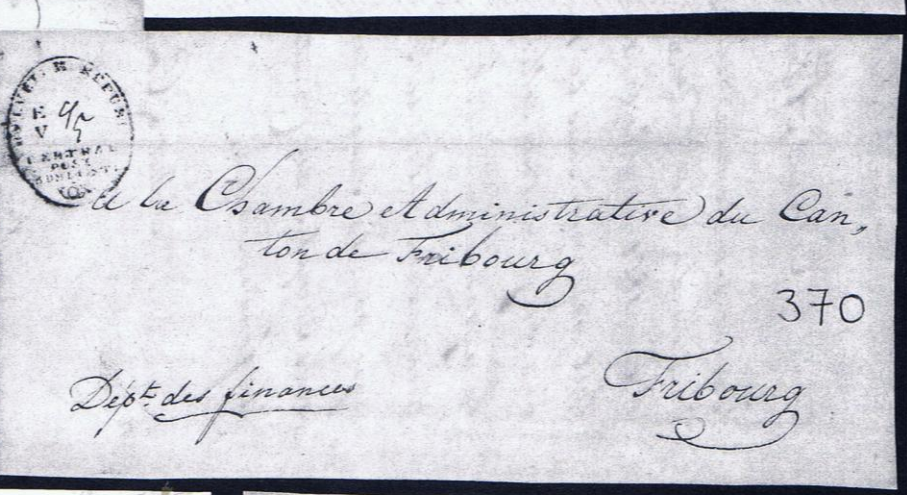 HELVET. REPUB.
E
V
CENTRAL
POST
ADMINIST.
A la Chambre Administrative du Can„
ton de Fribourg
370
Dépt. des finances
Fribourg